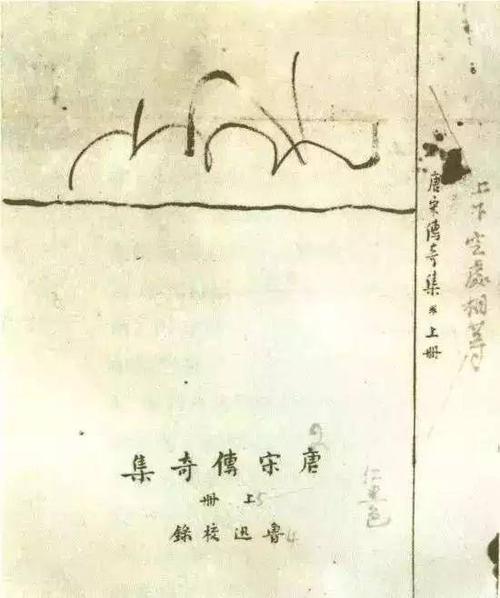 上下空處相等
唐宋傳奇集 * 上冊
2
唐宋傳奇集
5上冊
4魯迅校錄